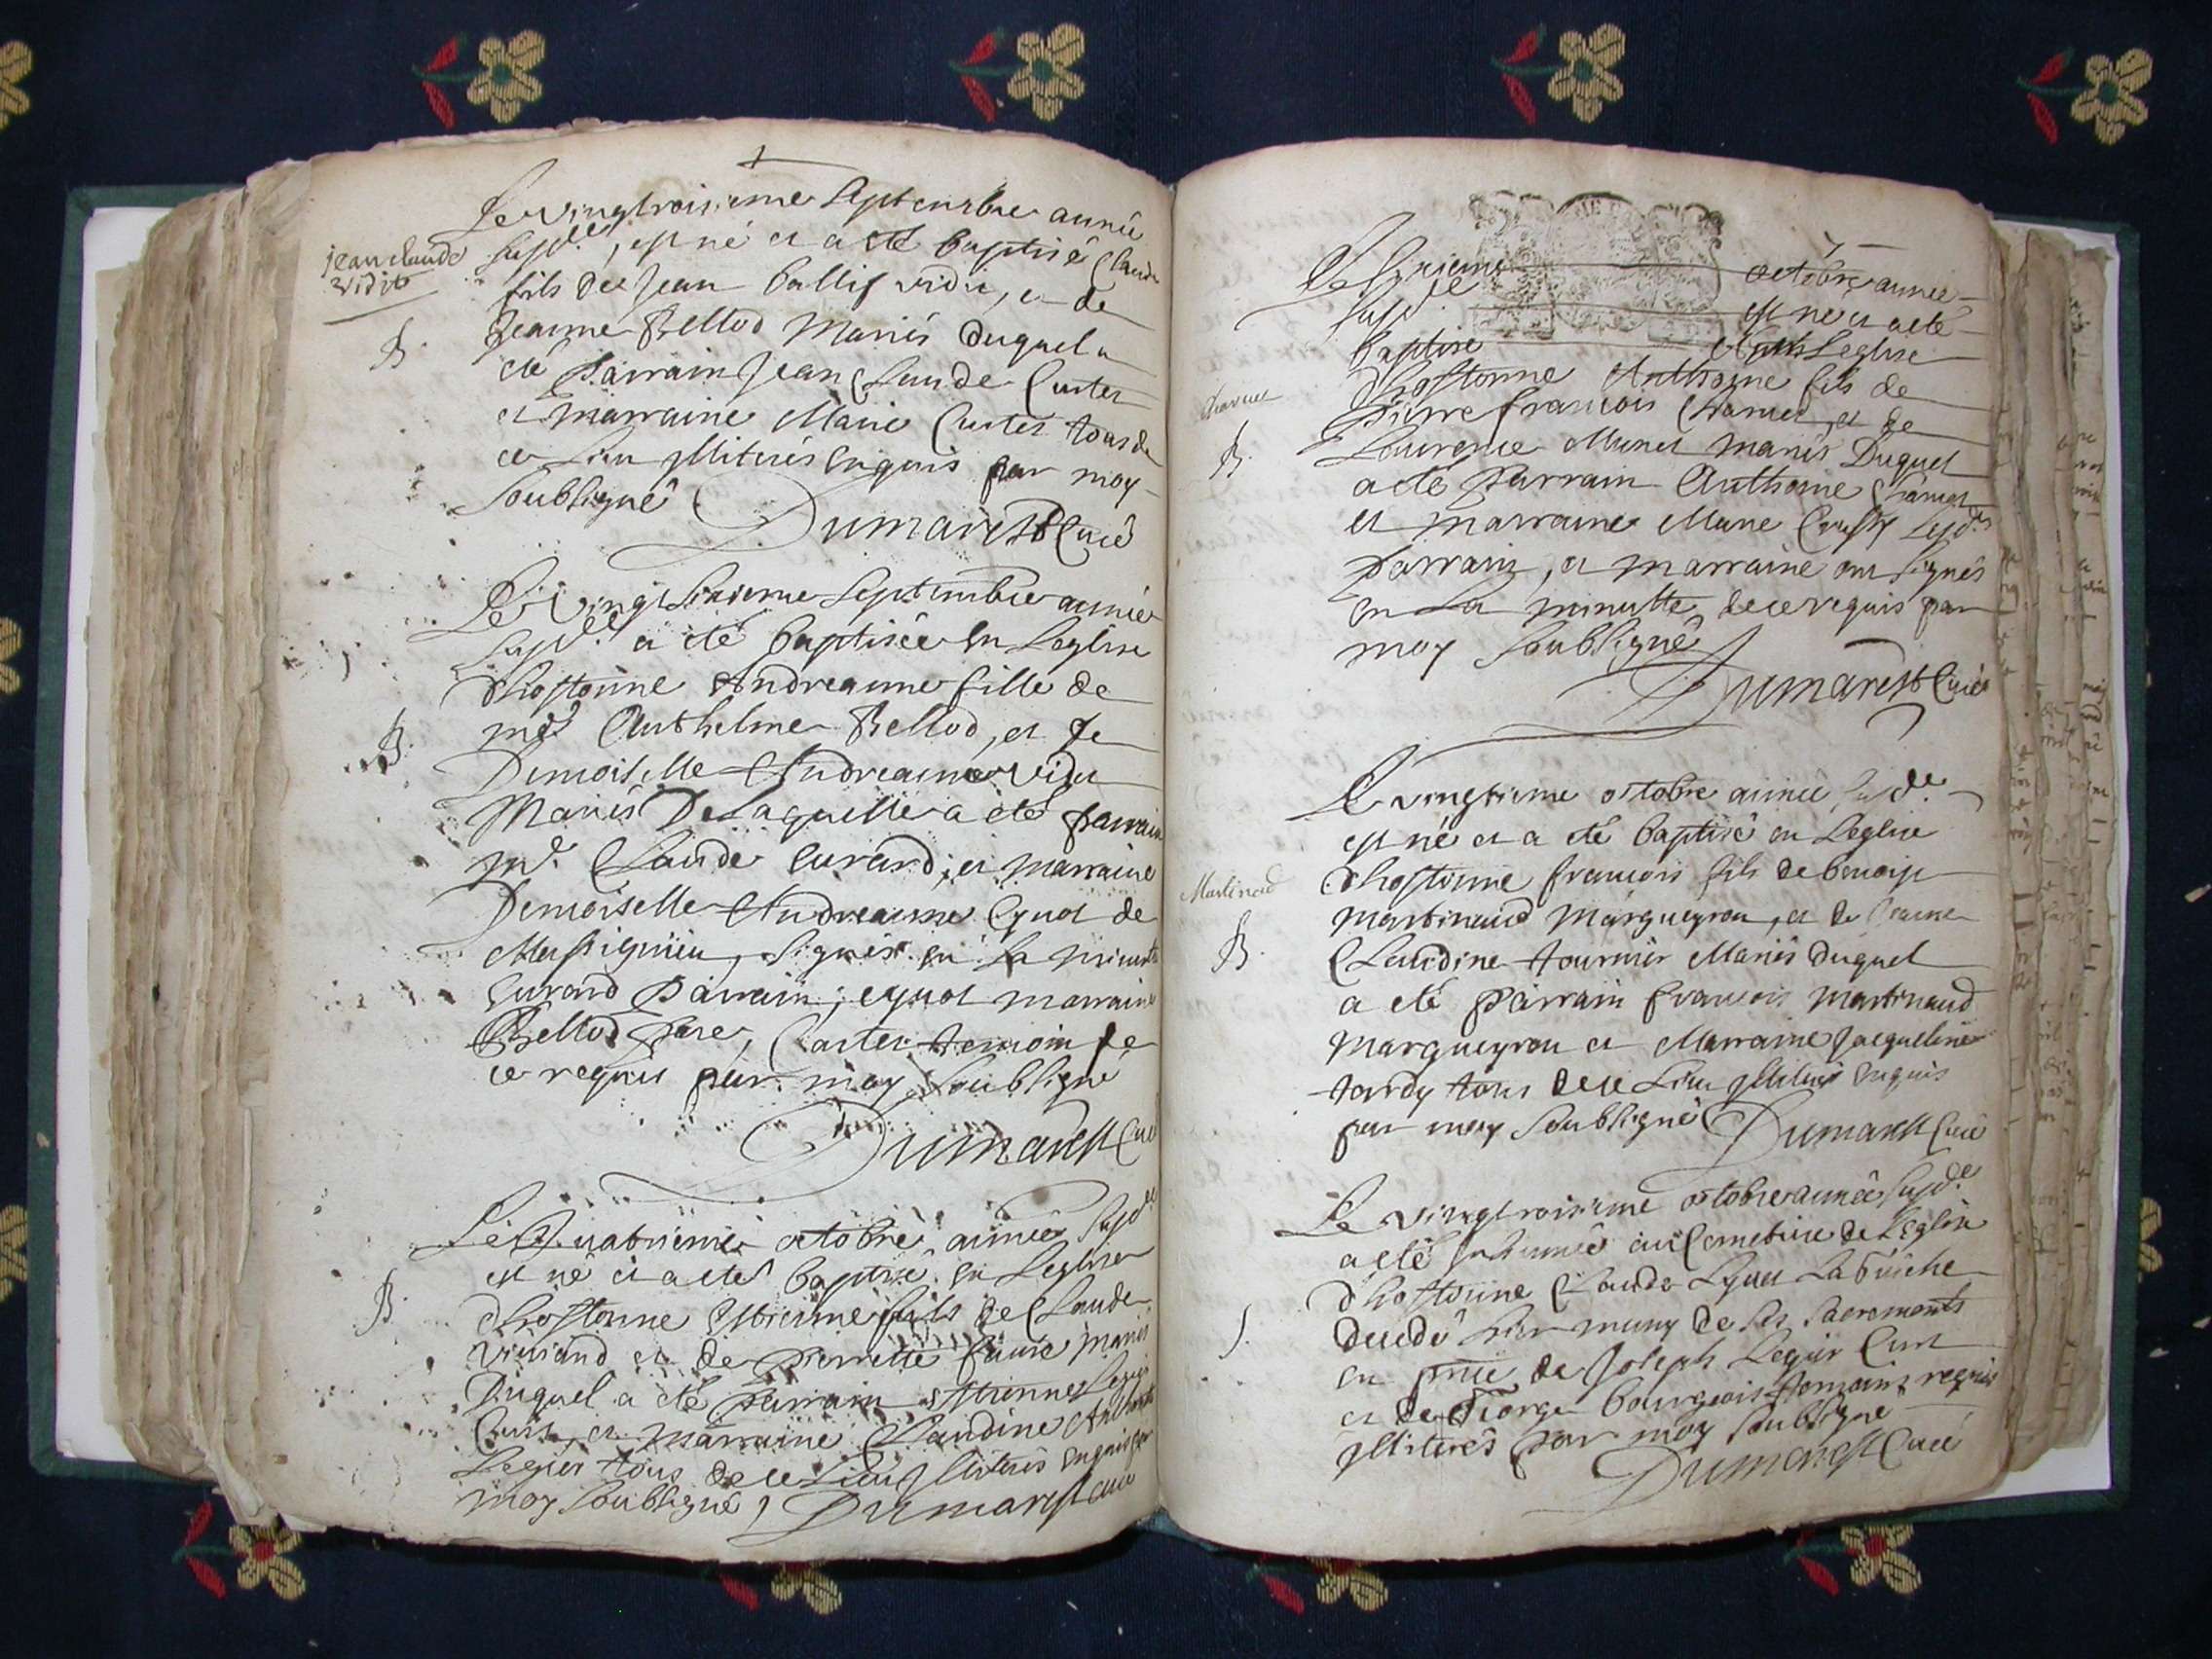 Le vingtroisieme Septembre année
jean claude
vidit
susd.e, est né et a eté baptisé Claude
fils de Jean ballif vidu, et de
B.
Jeanne Bellod Mariés duquel a
eté Parrain Jean Claude Carter
et marraine Marie Carter tous de
ce Lieu illiterés Enquis par moy
soubsigné Dumarest Curé
Le vingt Sixieme Septembre année
susd.e a eté baptisée en Leglise
dhostonne Andreanne fille de
B.
Anthelme Bellod, et de
Demoiselle Andreanne vidu
Mariés De Laquelle a eté parrain
m.e Claude Curard, et marraine
Demoiselle Andreanne de
Massignieu, Signés en La minute
Curard Parrain, marraine
Bellod Pere, Carter temoin de
ce requis par moy soubsigné
Dumarest Curé
Le Quatrieme octobre année susd.e
est né et a eté baptisé en Leglise
B.
dhostonne Estienne fils de Claude
et de Pierrette mariés
Duquel a eté parrain Estienne
et marraine Claudine
tous de ce Lieu illiterés Enquis par
moy soubsigné Dumarest curé
7
Le octobre année
susd.e est né et a eté
baptisé Leglise
dhostonne Anthoine fils de
Charvet
Pierre francois Charvet, et de
B.
Laurence Munet mariés Duquel
a eté Parrain Anthoine Charvet
et marraine Marie Lesd.s
Parrain, et marraine ont signés
en La minutte de ce requis par
moy soubsigné
Dumarest Curé
Le vingtieme octobre année susd.e
est né et a eté baptisé en Leglise
Martinad
dhostonne francois fils de benoist
martinaud Margueyron, et de
B.
Claudine tournier Mariés duquel
a eté Parrain francois martinaud
Margueyron et Marraine Jacqueline
tardy tous de ce Lieu illiterés Enquis
par moy soubsigné Dumarest Curé
Le vingtroisieme octobre année susd.e
a eté Inhumé au Cemetiere de Leglise
dhostonne Claude
S.
decedé hier muny de ses sacrements
en de Joseph
et de George bourgeois temoins requis
illiterés par moy soubsigné
Dumarest Curé